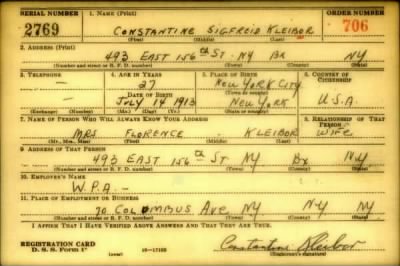 SERIAL NUMBER 1. NAME (Print) ORDER NUMBER
2769 CONSTANTINE SIGFROID KLEIBOR 706
(First) (Middle) (Last)
2. ADDRESS (Print)
493 EAST 156th ST. NY BX NY
(Number and street or R. F. D. number) (Town) (County) (State)
3. TELEPHONE 4. AGE IN YEARS 5. PLACE OF BIRTH 6. COUNTRY OF CITIZENSHIP
— 27 NEW YORK CITY
DATE OF BIRTH (Town or county)
— JULY 14 1913 NEW YORK U.S.A.
(Exchange) (Number) (Mo.) (Day) (Yr.) (State or country)
7. NAME OF PERSON WHO WILL ALWAYS KNOW YOUR ADDRESS 8. RELATIONSHIP OF THAT PERSON
MRS. FLORENCE - KLEIBOR WIFE
(Mr., Mrs., Miss) (First) (Middle) (Last)
9. ADDRESS OF THAT PERSON
493 EAST 156th ST NY BX NY
(Number and street or R. F. D. number) (Town) (County) (State)
10. EMPLOYER'S NAME
W.P.A. —
11. PLACE OF EMPLOYMENT OR BUSINESS
70 COLUMBUS AVE NY NY NY
(Number and street or R. F. D. number) (Town) (County) (State)
I AFFIRM THAT I HAVE VERIFIED ABOVE ANSWERS AND THAT THEY ARE TRUE.
REGISTRATION CARD
D. S. S. Form 1 16—17105 Constantine Kleibor
(Registrant's signature)